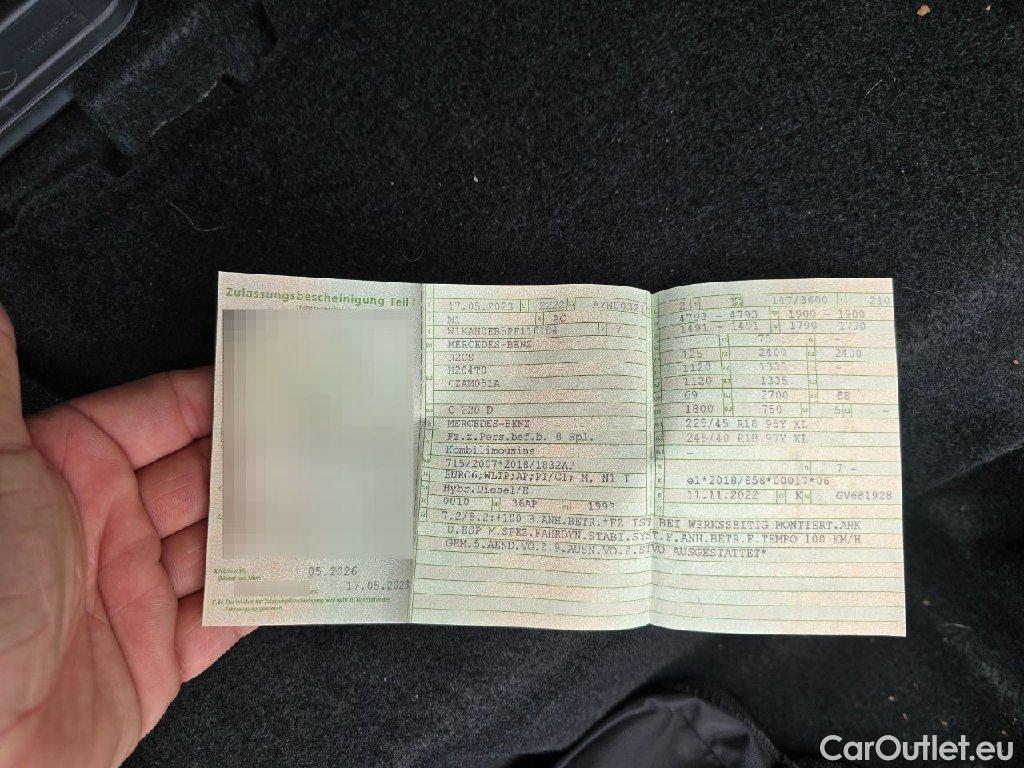 Zulassungsbescheinigung Teil I
17.05.2023 2222
M1 AC
MERCEDES-BENZ
R2CS
H204T0
CZAM051A
C 220 D
MERCEDES-BENZ
Fz.z.Pers.bef.b. 8 Spl.
Kombilimousine
715/2007*2018/1832AP
EURO6;WLTP;AP;PI/CI; M, N1 I
Hybr.Diesel/E
0010 36AP 1993
2 147/3600 210
4793 - 4793 1900 - 1900
1491 - 1491 1790 1790
75 -
125 2400 2400
1120 1335 -
1120 1335 -
69 2700 68
1800 750 5 -
225/45 R18 95Y XL
245/40 R18 97Y XL
-
7 -
e1*2018/858*00017*06
11.11.2022 K GV681928
7.2/8.2:+100 B.ANH.BETR.*FZ IST BEI WERKSSEITIG MONTIERT.AHK
U.ESP M.SPEZ.FAHRDYN.STABI.SYST.F.ANH.BETR.F.TEMPO 100 KM/H
GEM.5.AEND.VO.Z.9.AUSN.VO.Z.STVO AUSGESTATTET*
05.2026
17.05.2023
CarOutlet.eu